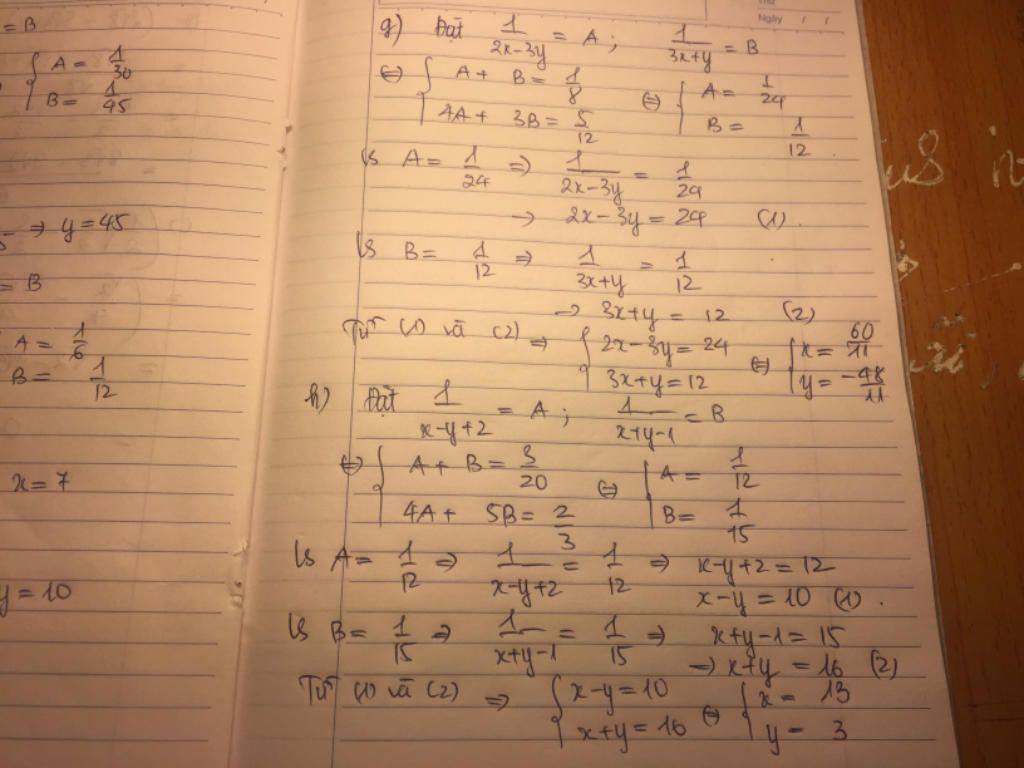 = B
{ A = 1/30
B = 1/45
⇒ y = 45
= B
A = 1/6
B = 1/12
x = 7
y = 10
Ngày / /
g) Đặt 1/(2x-3y) = A ; 1/(3x+y) = B
⇔ { A + B = 1/8 ⇔ { A = 1/24
4A + 3B = 5/12 B = 1/12
Vs A = 1/24 ⇒ 1/(2x-3y) = 1/24
→ 2x-3y = 24 (1).
Vs B = 1/12 ⇒ 1/(3x+y) = 1/12
→ 3x+y = 12 (2)
Từ (1) và (2) ⇒ { 2x-3y = 24 ⇔ { x = 60/11
3x+y = 12 y = -48/11
h) Đặt 1/(x-y+2) = A ; 1/(x+y-1) = B
⇔ { A + B = 3/20 ⇔ { A = 1/12
4A + 5B = 2/3 B = 1/15
Vs A = 1/12 ⇒ 1/(x-y+2) = 1/12 ⇒ x-y+2 = 12
x-y = 10 (1).
Vs B = 1/15 ⇒ 1/(x+y-1) = 1/15 ⇒ x+y-1 = 15
→ x+y = 16 (2)
Từ (1) và (2) ⇒ { x-y = 10 ⇔ { x = 13
x+y = 16 y = 3